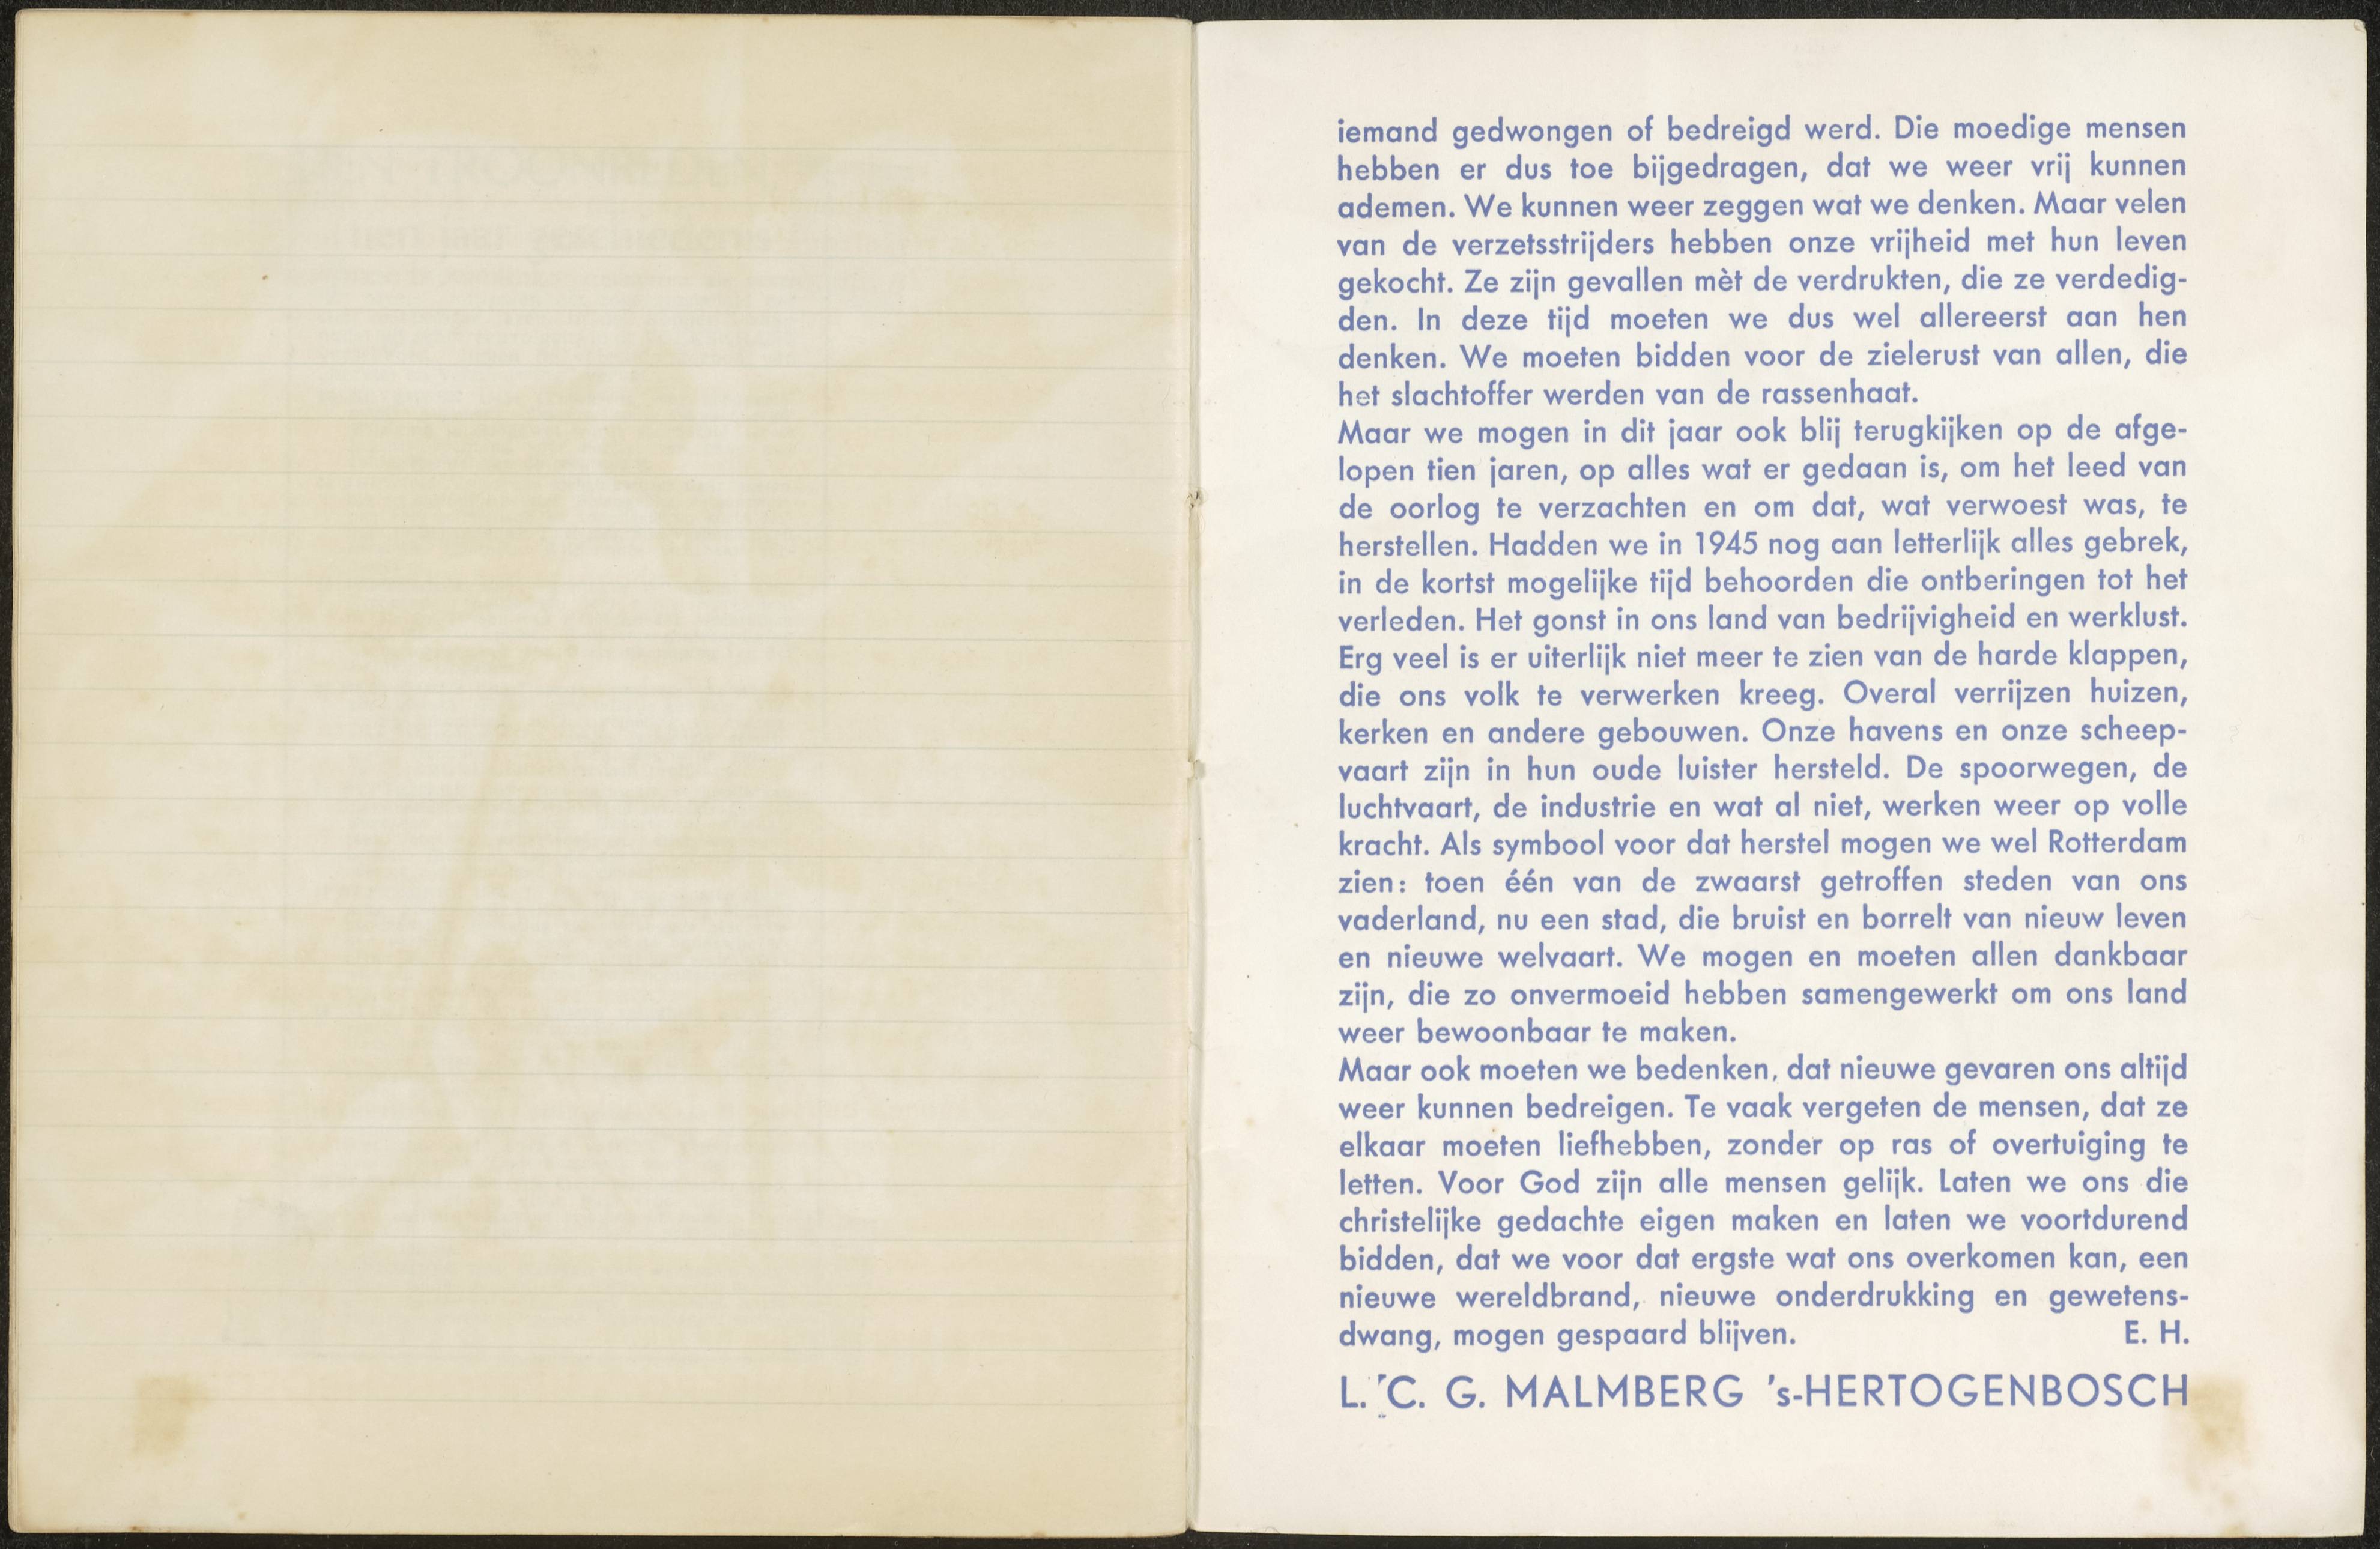 iemand gedwongen of bedreigd werd. Die moedige mensen
hebben er dus toe bijgedragen, dat we weer vrij kunnen
ademen. We kunnen weer zeggen wat we denken. Maar velen
van de verzetsstrijders hebben onze vrijheid met hun leven
gekocht. Ze zijn gevallen mèt de verdrukten, die ze verdedig-
den. In deze tijd moeten we dus wel allereerst aan hen
denken. We moeten bidden voor de zielerust van allen, die
het slachtoffer werden van de rassenhaat.
Maar we mogen in dit jaar ook blij terugkijken op de afge-
lopen tien jaren, op alles wat er gedaan is, om het leed van
de oorlog te verzachten en om dat, wat verwoest was, te
herstellen. Hadden we in 1945 nog aan letterlijk alles gebrek,
in de kortst mogelijke tijd behoorden die ontberingen tot het
verleden. Het gonst in ons land van bedrijvigheid en werklust.
Erg veel is er uiterlijk niet meer te zien van de harde klappen,
die ons volk te verwerken kreeg. Overal verrijzen huizen,
kerken en andere gebouwen. Onze havens en onze scheep-
vaart zijn in hun oude luister hersteld. De spoorwegen, de
luchtvaart, de industrie en wat al niet, werken weer op volle
kracht. Als symbool voor dat herstel mogen we wel Rotterdam
zien: toen één van de zwaarst getroffen steden van ons
vaderland, nu een stad, die bruist en borrelt van nieuw leven
en nieuwe welvaart. We mogen en moeten allen dankbaar
zijn, die zo onvermoeid hebben samengewerkt om ons land
weer bewoonbaar te maken.
Maar ook moeten we bedenken, dat nieuwe gevaren ons altijd
weer kunnen bedreigen. Te vaak vergeten de mensen, dat ze
elkaar moeten liefhebben, zonder op ras of overtuiging te
letten. Voor God zijn alle mensen gelijk. Laten we ons die
christelijke gedachte eigen maken en laten we voortdurend
bidden, dat we voor dat ergste wat ons overkomen kan, een
nieuwe wereldbrand, nieuwe onderdrukking en gewetens-
dwang, mogen gespaard blijven. E. H.
L. C. G. MALMBERG 's-HERTOGENBOSCH